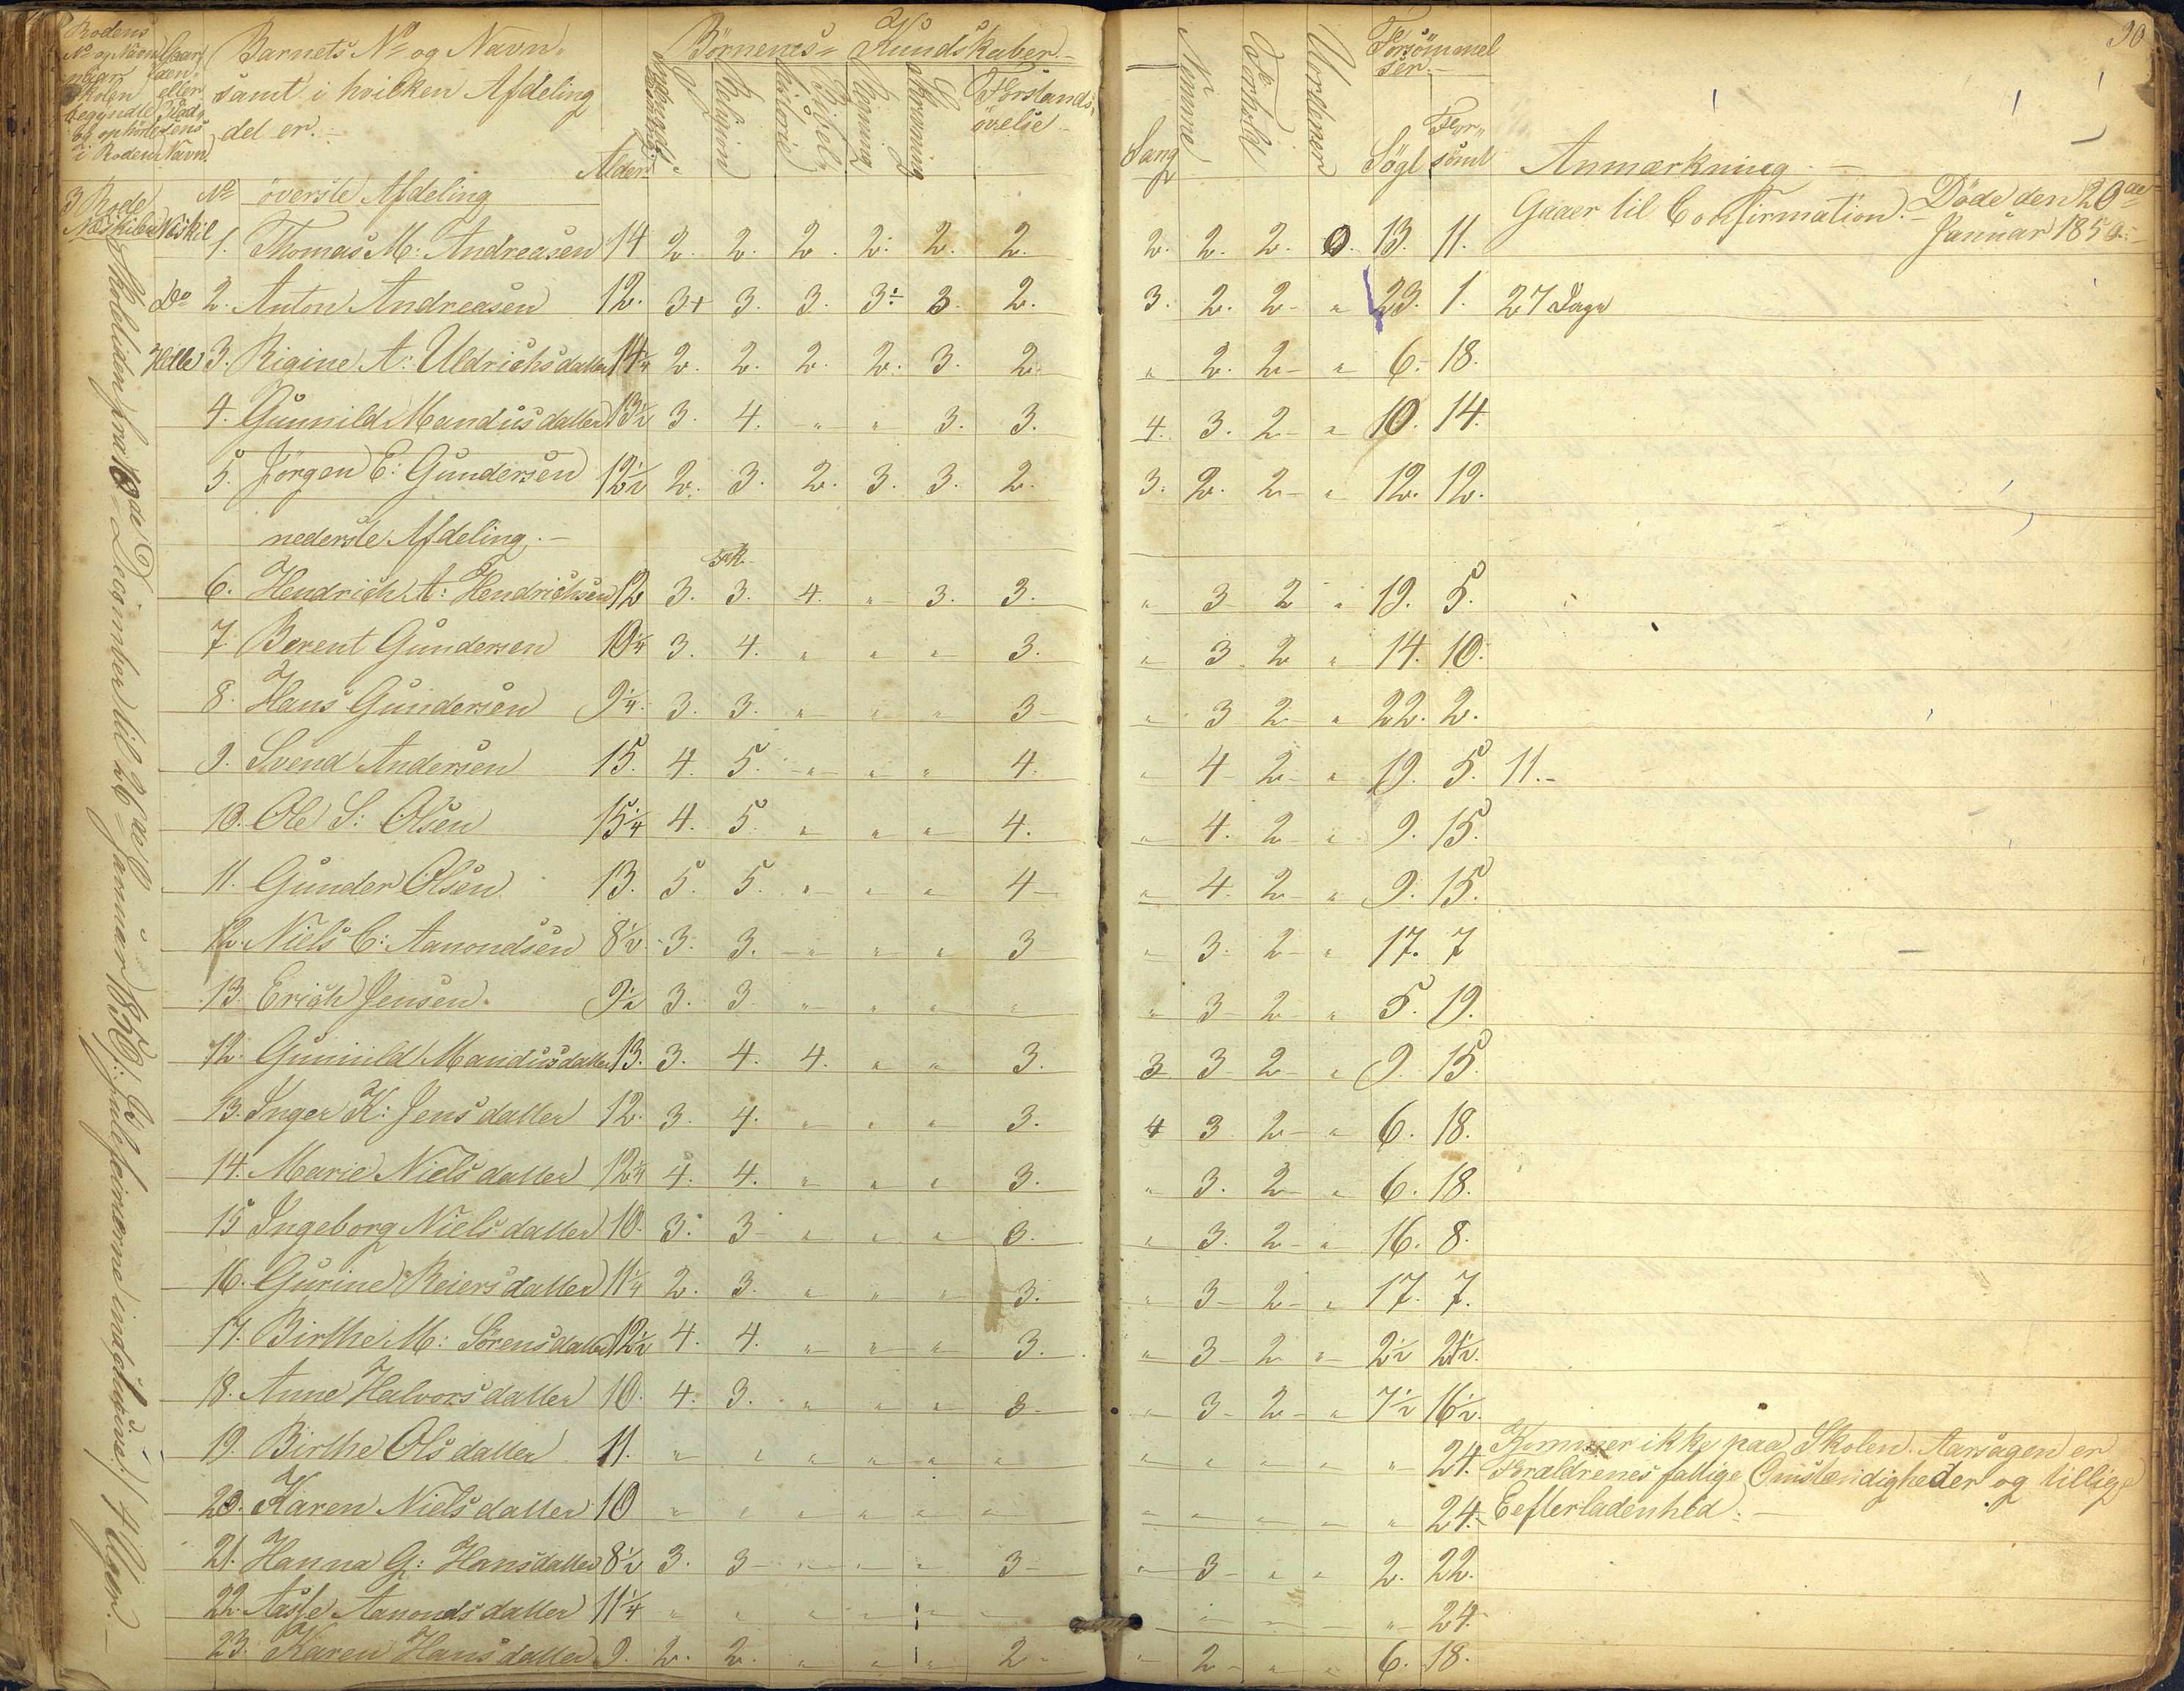 30
Rodens
No og Navn
naar
Skolen
begyndte
og ophörte
i Roden
Gaar
den
eller
Plad
sens
Navn.
Barnets No og Navn
samt i hvilken Afdeling
det er.
Alder
Börnenes Kundskaber
Religion
Bibel
historie
Regning
Skrivning
Forstands
övelse
Sang
Nemme
Forhold
Forsömmel
ser
Sögt
For
sömt
Anmærkning
3 Rode
Næskilen
Næskil
No överste Afdeling
1. Thomas M: Andreasen 14 2. 2. 2. 2. 2. 2. 2. 2. 2. 0. 13. 11. Gaaer til Confirmation. Döde den 20de
Januar 1850.
Do 2. Anton Andreasen 12. 3+ 3. 3. 3 3. 2. 3. 2. 2 " 23. 1. 27 Dage
Hille 3. Rigine A: Uldrichsdatter 14 1/4 2. 2. 2. 2. 3. 2. " 2. 2 " 6. 18.
4. Gunnild Mandusdatter 13 1/2 3. 4. " " 3. 3. 4. 3. 2 " 10. 14.
5. Jörgen E: Gundersen 12 1/2 2. 3. 2. 3. 3. 2. 3. 2. 2 " 12. 12.
nederste Afdeling.
6. Hendrich A: Hendrichsen 12 3. 3. 4. " 3. 3. " 3 2 " 19. 5.
7. Berent Gundersen 10 1/4 3. 4. " " " 3. " 3. 2 " 14. 10.
8. Hans Gundersen 9 1/4 3. 3. " " " 3 " 3 2 " 22. 2.
9. Svend Andersen 15. 4. 5. " " " 4. " 4 2 " 19. 5. 11.
10. Ole S: Olsen 15 1/4 4. 5. " " " 4. " 4. 2 " 9. 15.
11. Gunder Olsen 13. 5. 5. " " " 4 " 4. 2 " 9. 15.
12. Niels C: Aanondsen 8 1/2 3. 3. " " " 3 " 3. 2 " 17. 7
13. Erich Jensen. 9 1/2 3. 3. " " " " " 3 2 " 5. 19.
12. Gunnild Mandusdatter 13. 3. 4. 4. " " 3. 3 3 2 " 9. 15.
13. Inger K: Jensdatter 12. 3. 4. " " " 3. 4 3 2 " 6. 18.
14. Marie Nielsdatter 12 1/4 4. 4. " " " 3. " 3. 2 " 6. 18.
15 Ingeborg Nielsdatter 10. 3. 3 " " " 3. " 3. 2 " 16. 8.
16. Gurine Reiersdatter 11 1/4 2. 3. " " " 3. " 3 2 " 17. 7.
17. Birthe M: Sörensdatter 12 1/2 4. 4. " " " 3. " 3 2 " 2 1/2 21 1/2.
18. Anne Halvorsdatter 10. 4. 3. " " " 3 " 3 2 " 7 1/2 16 1/2.
19. Birthe Olsdatter 11. " " " " " " " " " " " 24. Kommer ikke paa Skolen. Aarsagen er
Forældrenes fattige Omstændigheder og tillige
20. Karen Nielsdatter 10 " " " " " " " " " " " 24. Eefterladenhed.
21. Hanna G: Hansdatter 8 1/2 3. 3 " " " 3 " 3 " " 2. 22.
22. Aasse Aanondsdatter 11 1/4 " " " " " " " " " " 24.
23. Karen Hansdatter 9. 2. 2. " " " 2 " 2 " " 6. 18.
Skoletiden fra 13de December til 26de Januar 1850 (Juleferierne inclusive) 4 Uger.